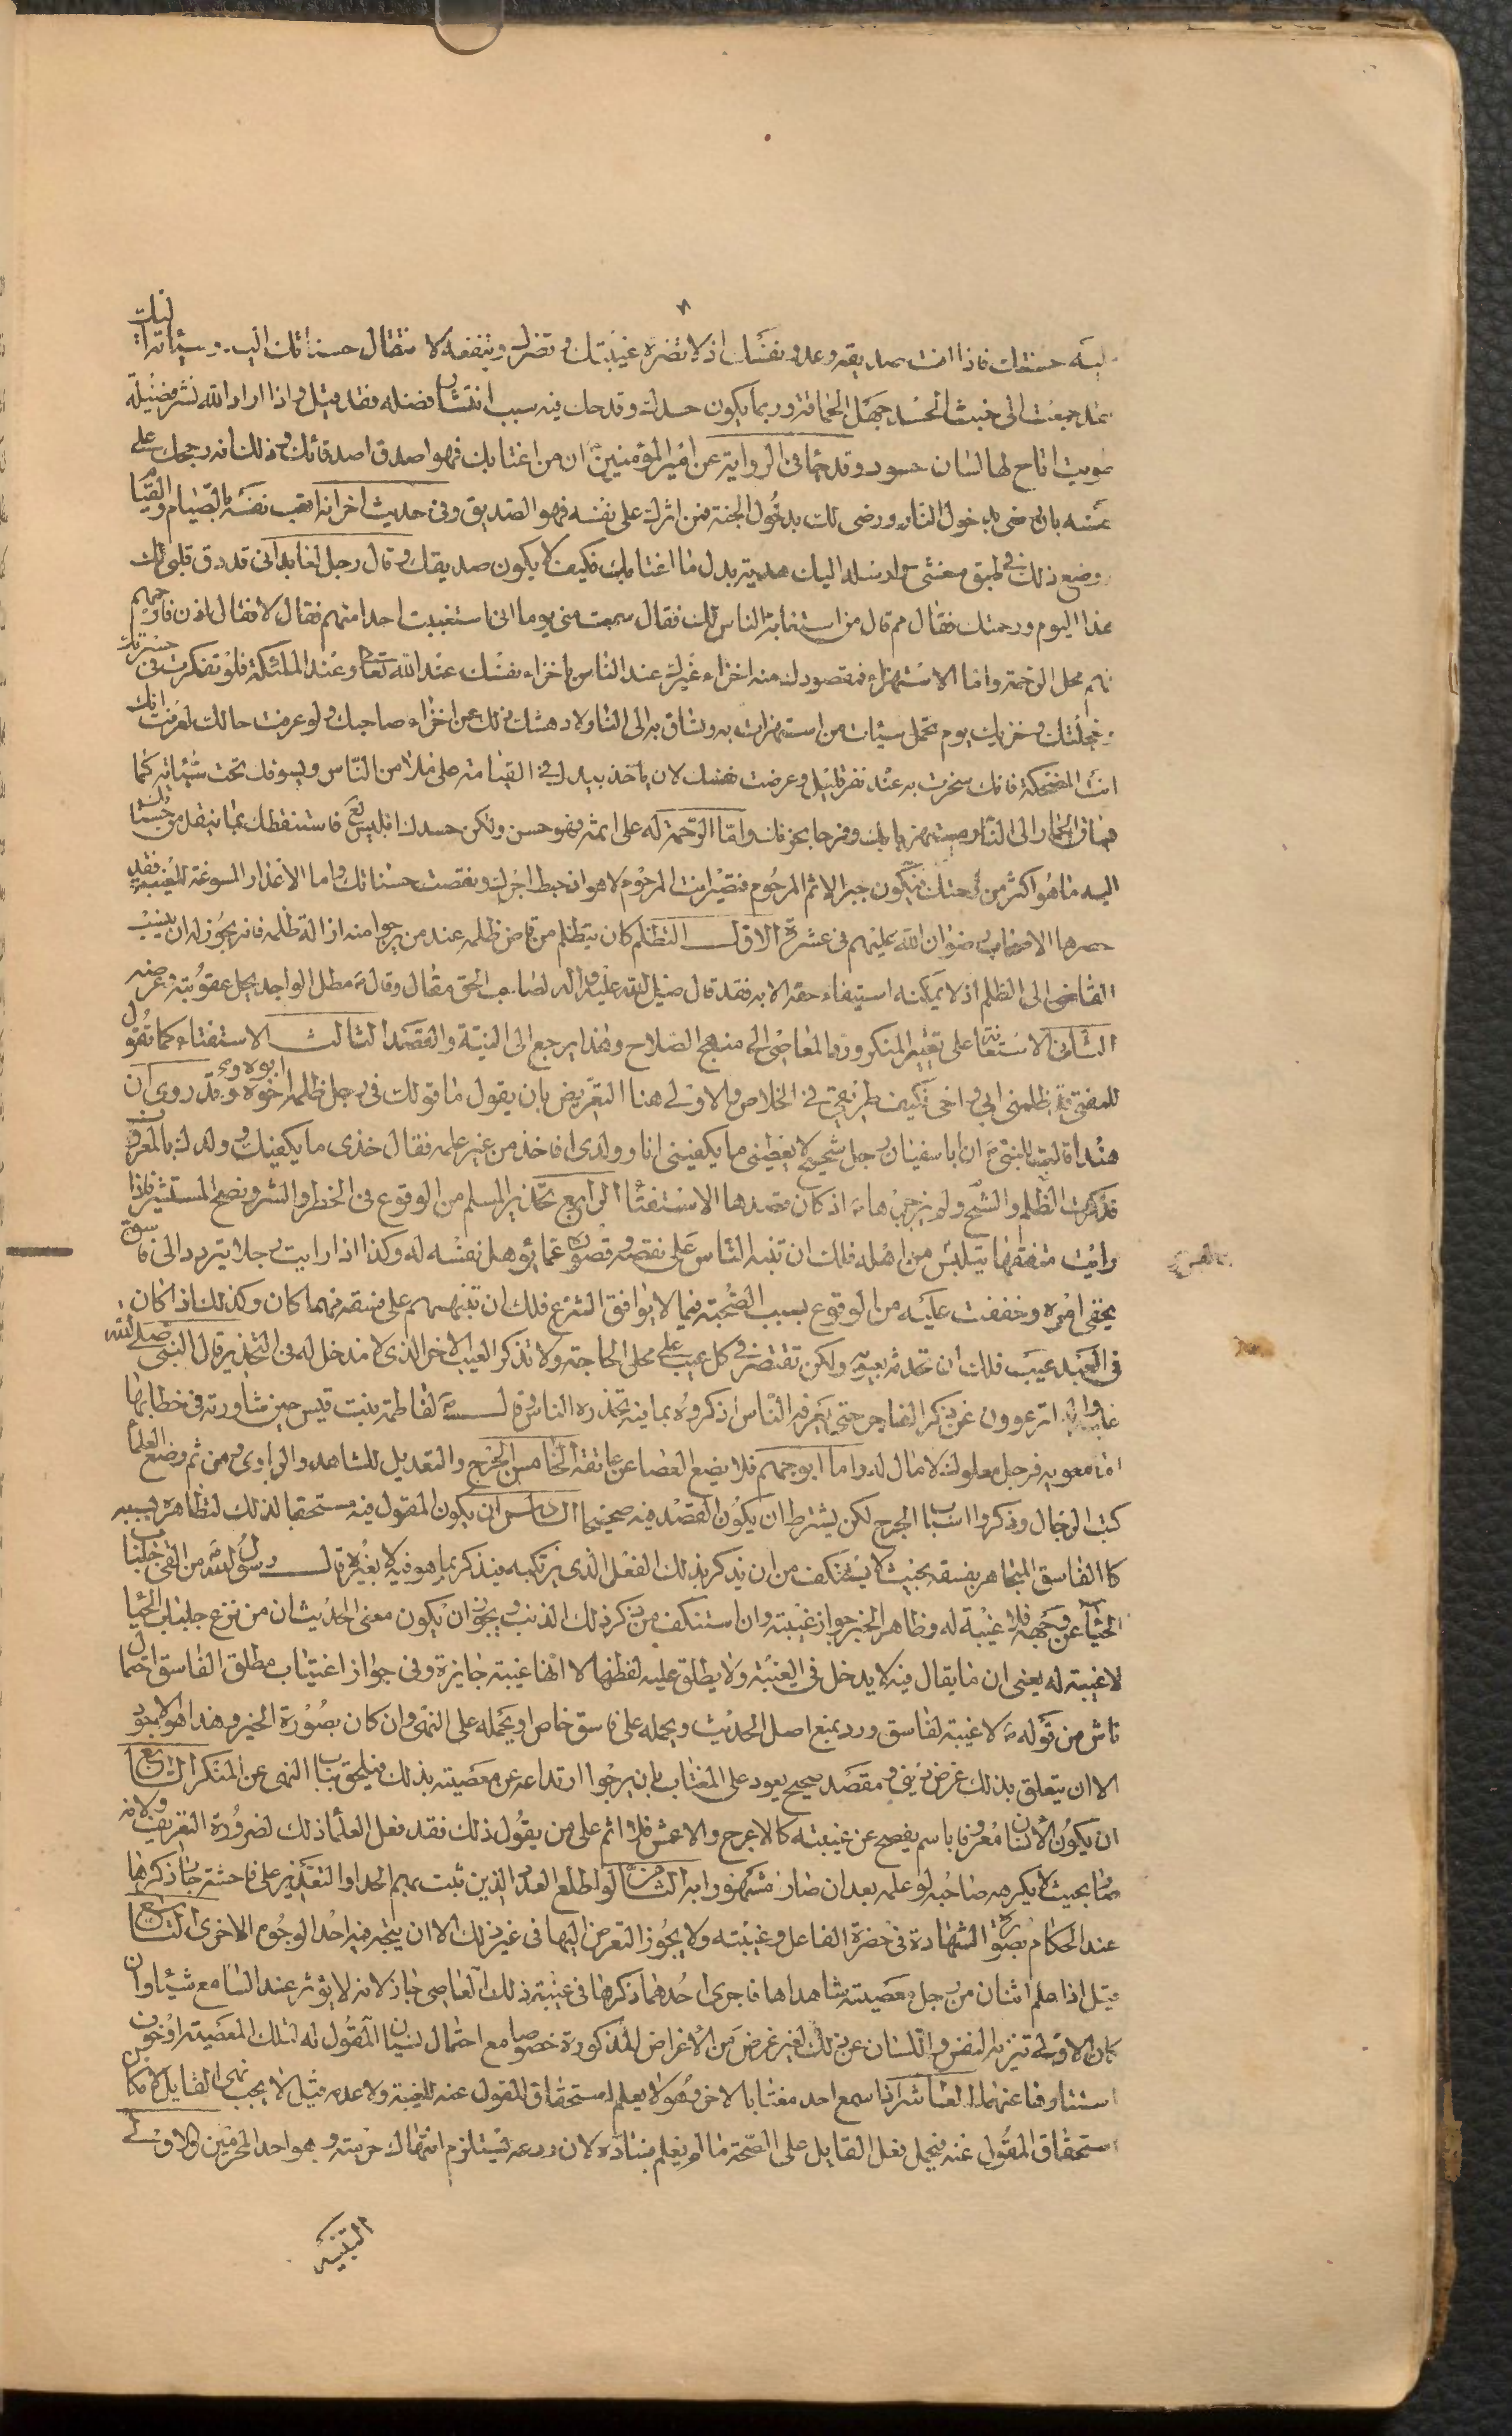 اليه حسنتك فاذا انت صديقه وعدو نفسك اذ لا تضره غيبتك وتضرك وتنفعه لا نتقال حسناتك اليه وسيئاته اليك
فقد جمعت الى خبث الحسد جهل الحماقة وربما يكون حسدك وقدحك فيه سبب انتشار فضله فقد قيل واذا اراد الله نشر فضيلة
طويت اتاح لها لسان حسود وقد جاء في الرواية عن امير المؤمنين ان من اغتابك فهو اصدق اصدقائك وذلك انه رجحك على
نفسه بان رضى بدخول النار ورضى لك بدخول الجنة فمن اثرك على نفسه فهو الصديق وفي حديث اخر انه اتعب نفسه بالصيام والقيام
ووضع ذلك في طبق مغشى وارسله اليك هدية بدل ما اغتابك فكيف لا يكون صديقك وقال رجل لعابد اني قد رق قلبي لك
هذا اليوم ورحمتك فقال مم قال من استغابة الناس لك فقال سمعت مني يوما اني استغيبت احدا منهم فقال لا فقال اذن فارحمهم
فهم محل الرحمة واما الاستهزاء فمقصودك منه اخزاء غيرك عند الناس باخزاء نفسك عند الله تعالى وعند الملئكة فلو تفكرت في حسرتك
وخجلتك وخزيك يوم تحمل سيئات من استهزات به وتساق به الى النار ولا دهشك ذلك عن اخزاء صاحبك ولو عرفت حالك لعرفت انك
انت المضحكة فانك سخرت به عند نفر قليل وعرضت نفسك لان ياخذ بيدك في القيامة على ملأ من الناس ويسوقك تحت سيئاته كما
يساق الحمار الى النار مستهزءا بك وفرحا بخزيك واما الرحمة له على اثمه فهو حسن ولكن حسدك ابليس لع فاستنطقك بما ينقل من حسناتك
اليه ما هو اكثر من رحمتك فيكون جبر الاثم المرحوم فتصير انت المرحوم لا هو ان حبط اجرك ونقصت حسناتك واما الاعذار المسوغة للغيبة فقد
حصرها الاصحاب رضوان الله عليهم في عشرة الاول التظلم كان يتظلم من قاض ظلمه عند من يرجوا منه ازالة ظلمه فانه يجوز له ان ينسب
القاضي الى الظلم اذ لا يمكنه استيفاء حقه الا به فقد قال صلى الله عليه واله لصاحب الحق مقال وقال ص مطل الواجد يحل عقوبته وعرضه
الثاني الاستعانة على تغيير المنكر ورد المعاصي الى منهج الصلاح وهذا يرجع الى النية والقصد الثالث الاستفتاء كما تقول
للمفتي قد ظلمني ابي واخي فكيف طريقي في الخلاص والاولى هنا التعريض بان يقول ما قولك في رجل ظلمه ابوه واخوه وقد روي ان
هند اقالت للنبي ص ان ابا سفيان رجل شحيح لا يعطيني ما يكفيني انا وولدي افاخذ من غير علمه فقال خذي ما يكفيك وولدك بالمعروف
فذكرت الظلم والشح ولم يزجرها ص اذ كان قصدها الاستفتاء الرابع تحذير المسلم من الوقوع في الخطر والشر ونصح المستشير فاذا
رايت متفقها يتلبس من اهله فلك ان تنبه الناس على نقصه وقصوره عما يؤهل نفسه له وكذا اذا رايت رجلا يتردد الى فاسق
يخفى امره وخففت عليه من الوقوع بسبب الصحبة فيما لا يوافق الشرع فلك ان تنبههم على فسقه فهما كان وكذلك اذا كان
في العبد عيب فلك ان تحدثه بعيبه ولكن تقتصر في كل عيب على محل الحاجة ولا تذكر العيب الاخر الذي لا مدخل له في التحذير قال النبي صلى الله
عليه واله اترعوون عن ذكر الفاجر حتى يعرفه الناس اذكروه بما فيه تحذره الناس وقال ص لفاطمة بنت قيس حين شاورته في خطابها
اما معوية فرجل صعلوك لا مال له واما ابو جهم فلا يضع العصا عن عاتقه الخامس الجرح والتعديل للشاهد والراوي ومن ثم وضع العلماء
كتب الرجال وذكروا اسباب الجرح لكن يشترط ان يكون القصد فيه صحيحا السادس ان يكون المقول فيه مستحقا لذلك لتظاهره بسببه
كالفاسق المتجاهر بفسقه بحيث لا يستنكف من ان يذكر بذلك الفعل الذي يرتكبه فيذكر بما هو فيه لا بغيره قال رسول الله ص من القى جلباب
الحياء عن وجهه فلا غيبة له وظاهر الخبر جواز غيبته وان استنكف من ذكر ذلك الذنب ويجوز ان يكون معنى الحديث ان من نزع جلباب الحياء
لا غيبة له يعني ان ما يقال فيه لا يدخل في الغيبة ولا يطلق عليه لفظها لا انها غيبة جايزة وفي جواز اغتياب مطلق الفاسق احتمال
ناش من قوله ص لا غيبة لفاسق ورد بمنع اصل الحديث وبحمله على فاسق خاص او بحمله على النهي وان كان بصورة الخبر وهذا هو الاجود
الا ان يتعلق بذلك غرض ديني ومقصد صحيح يعود على المغتاب بان يرجوا ارتداعه عن معصيته بذلك فيلحق بباب النهي عن المنكر السابع
ان يكون الانسان معروفا باسم يفصح عن غيبته كالاعرج والاعمش فلا اثم على من يقول ذلك فقد فعل العلماء ذلك لضرورة التعريف ولانه
صار بحيث لا يكرهه صاحبه لو علمه بعد ان صار مشهورا به الثامن لو اطلع العدد الذين ثبت بهم الحد او التعزير على فاحشة جاز ذكرها
عند الحكام بصورة الشهادة في حضرة الفاعل وغيبته ولا يجوز التعرض اليها في غير ذلك الا ان يتجه فيه احد الوجوه الاخرى التاسع
قيل اذا علم اثنان من رجل معصية شاهداها فاجرى احدهما ذكرها في غيبة ذلك العاصي جاز لانه لا يؤثر عند السامع شيئا وان
كان الاولى تنزيه النفس واللسان عن ذلك لغير غرض من الاغراض المذكورة خصوصا مع احتمال نسيان المقول له لتلك المعصية او خوف
اشتهارها عنهما العاشر اذا سمع احد مغتابا لاخر وهو لا يعلم استحقاق المقول عنه للغيبة ولا عدمه قيل لا يجب نهي القايل لامكان
استحقاق المقول عنه فيحمل فعل القايل على الصحة ما لم يعلم فساده لان ردعه يستلزم انتهاك حرمته وهو احد المحرمين والاولى
التنبيه